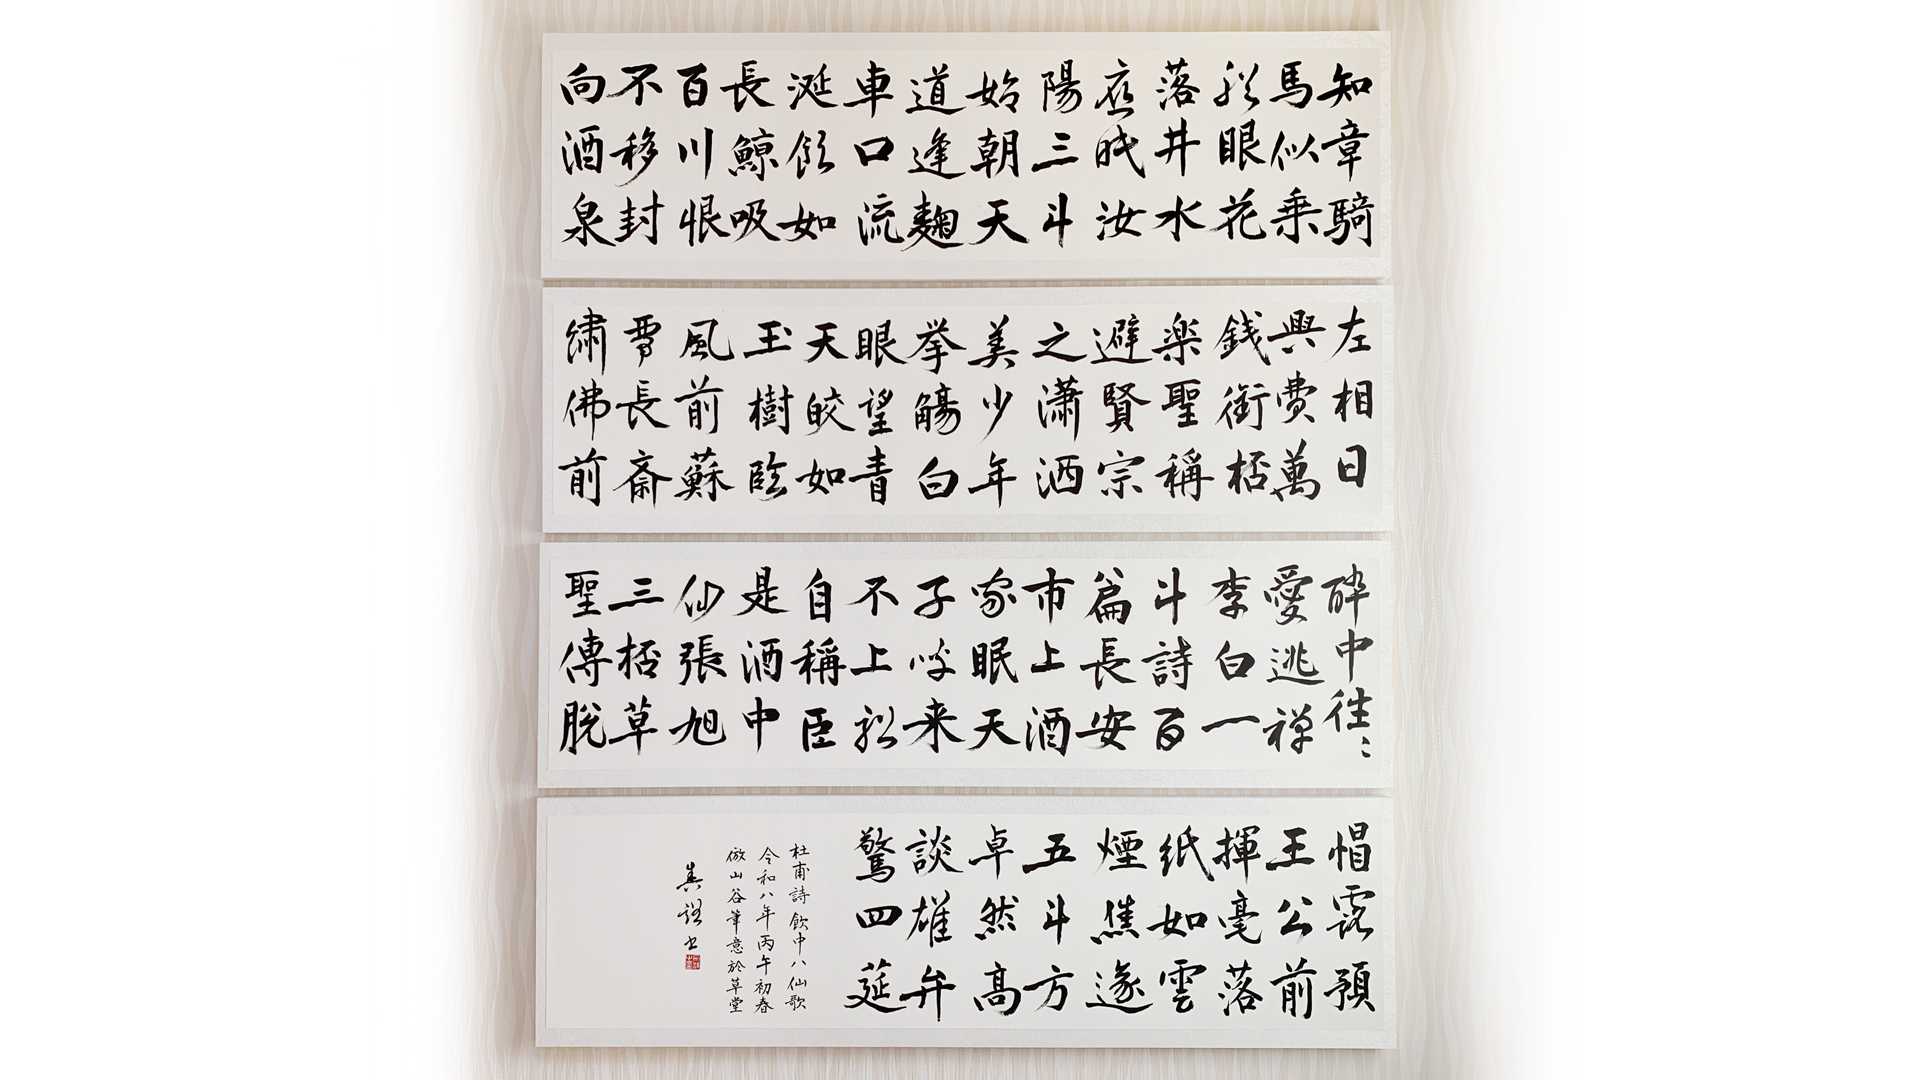 知章騎
馬似乗
船眼花
落井水
底眠汝
陽三斗
始朝天
道逢麹
車口流
涎飲如
長鯨吸
百川恨
不移封
向酒泉
左相日
興費萬
銭銜桮
楽聖稱
避賢宗
之瀟洒
美少年
挙觴白
眼望青
天皎如
玉樹臨
風前蘇
晋長斎
繍佛前
酔中往〻
愛逃禅
李白一
斗詩百
篇長安
市上酒
家眠天
子呼来
不上船
自稱臣
是酒中
仙張旭
三桮草
聖傳脱
帽露頂
王公前
揮毫落
紙如雲
煙焦遂
五斗方
卓然高
談雄弁
驚四筵
杜甫詩飲中八仙歌
令和八年丙午初春
倣山谷筆意於草堂